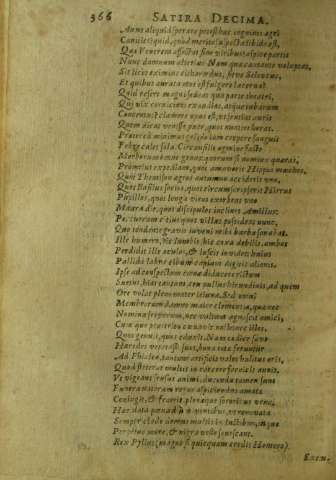 366 SATIRA DECIMA.
Anne aliquid sperare potest hæc inguinis ægri
Canicies? quid, quod merito suspecta libido est,
Quæ Venerem affectat sine viribus? aspice partis
Nunc damnum alterius. Nam quæ cantante voluptas,
Sit licet eximius citharœdus, sitve Seleucus,
Et quibus aurata mos est fulgere lacerna?
Quid refert magni sedeat qua parte theatri,
Qui vix cornicines exaudiat, atque tubarum
Concentus? clamore opus est, ut sentiat auris
Quem dicat venisse puer, quot nunciet horas.
Præterea minimus gelido iam corpore sanguis
Febre calet sola. Circumsilit agmine facto
Morborum omne genus, quorum si nomina quæras,
Promtius expediam, quot amaverit Hippia mœchos,
Quot Themison ægros autumno occiderit uno,
Quot Basilus socios, quot circumscripserit Hirrus
Pupillos, quot longa viros exorbeat uno
Maura die, quot discipulos inclinet Amillus:
Percurram citius quot villas possideat nunc,
Quo tondente gravis iuveni mihi barba sonabat.
Ille humero, hic lumbis, hic coxa debilis, ambos
Perdidit ille oculos, & luscis invidet: huius
Pallida labra cibum capiunt digitis alienis.
Ipse ad conspectum cœnæ diducere rictum
Suetus, hiat tantum ceu pullus hirundinis, ad quem
Ore volat pleno mater ieiuna. Sed omni
Membrorum damno maior dementia, quæ nec
Nomina servorum, nec vultum agnoscit amici,
Cum quo præterita cœnavit nocte, nec illos,
Quos genuit, quos eduxit. Nam codice sævo
Heredes vetat esse suos, bona tota feruntur
Ad Phialen, tantum artificis valet halitus oris,
Quod steterat multis in carcere fornicis annis.
Ut vigeant sensus animi, ducenda tamen sunt
Funera natorum, rogus aspiciendus amatæ
Coniugis, & fratris, plenæque sororibus urnæ.
Hæc data pœna diu viventibus, ut renovata
Semper clade domus multis in luctibus, inque
Perpetuo mœrore, & nigra veste senescant.
Rex Pylius (magno si quicquam credis Homero)
Exem-